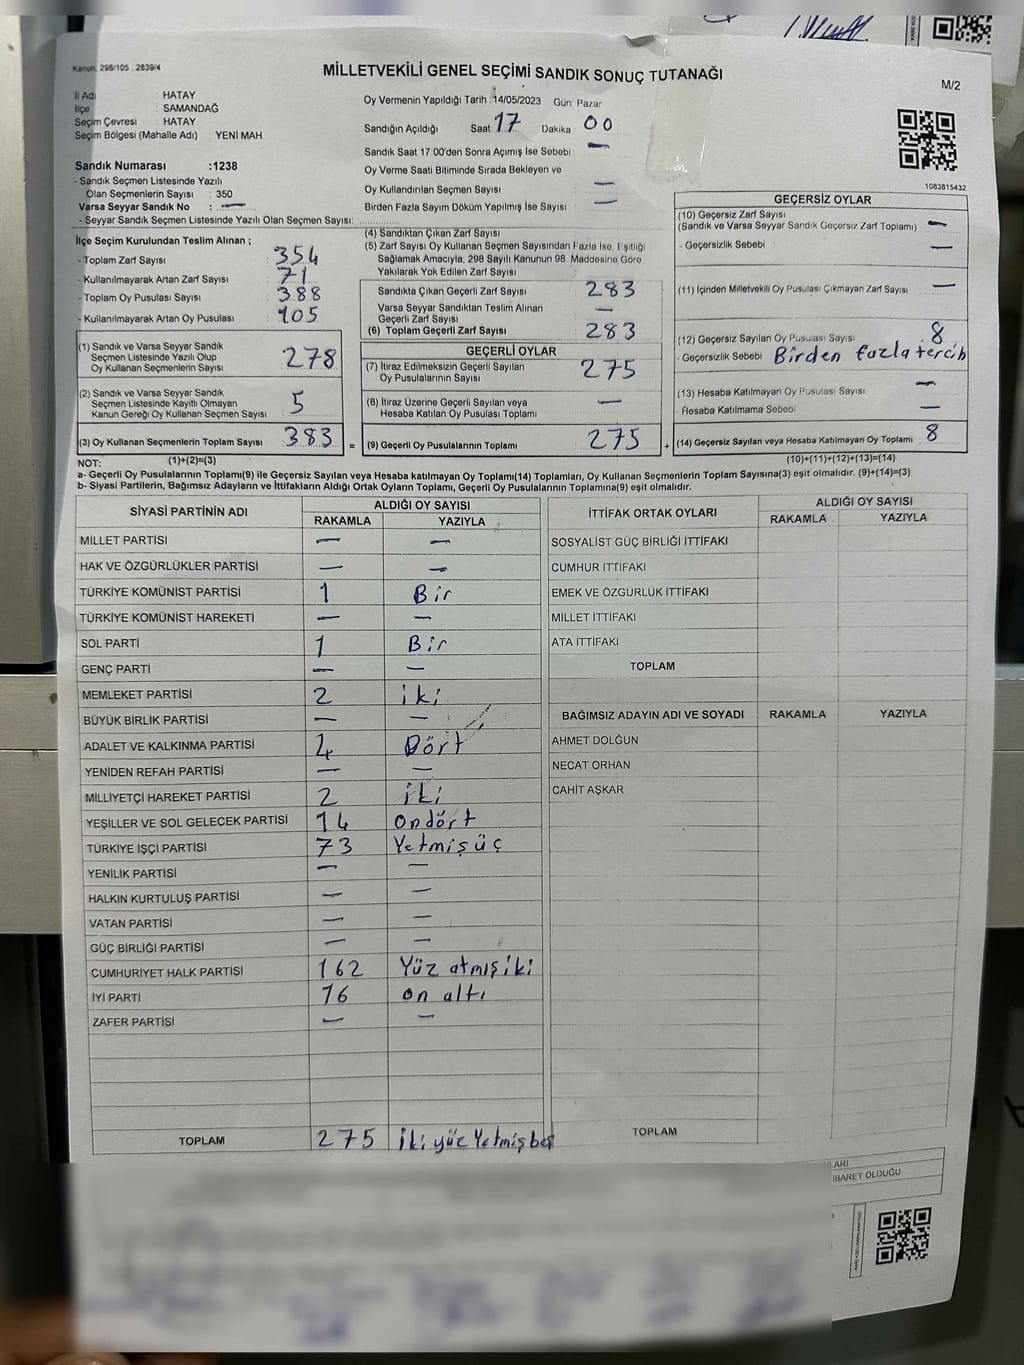 Kanun: 298/105 . 2839/4
MİLLETVEKİLİ GENEL SEÇİMİ SANDIK SONUÇ TUTANAĞI
M/2
İl Adı : HATAY
İlçe : SAMANDAĞ
Seçim Çevresi : HATAY
Seçim Bölgesi (Mahalle Adı) : YENİ MAH.
Oy Vermenin Yapıldığı Tarih : 14/05/2023 Gün: Pazar
Sandığın Açıldığı Saat 17 Dakika 00
Sandık Saat 17:00'den Sonra Açımış İse Sebebi : —
Oy Verme Saati Bitiminde Sırada Bekleyen ve
Oy Kullandırılan Seçmen Sayısı —
Birden Fazla Sayım Döküm Yapılmış İse Sayısı : —
Sandık Numarası :1238
- Sandık Seçmen Listesinde Yazılı
Olan Seçmenlerin Sayısı : 350
Varsa Seyyar Sandık No : —
- Seyyar Sandık Seçmen Listesinde Yazılı Olan Seçmen Sayısı:
1083815432
İlçe Seçim Kurulundan Teslim Alınan ;
- Toplam Zarf Sayısı 354
- Kullanılmayarak Artan Zarf Sayısı 71
- Toplam Oy Pusulası Sayısı 388
- Kullanılmayarak Artan Oy Pusulası 105
(1) Sandık ve Varsa Seyyar Sandık
Seçmen Listesinde Yazılı Olup
Oy Kullanan Seçmenlerin Sayısı 278
(2) Sandık ve Varsa Seyyar Sandık
Seçmen Listesinde Kayıtlı Olmayan
Kanun Gereği Oy Kullanan Seçmen Sayısı 5
(3) Oy Kullanan Seçmenlerin Toplam Sayısı 383 =
(1)+(2)=(3)
(4) Sandıktan Çıkan Zarf Sayısı
(5) Zarf Sayısı Oy Kullanan Seçmen Sayısından Fazla İse, Eşitliği
Sağlamak Amacıyla, 298 Sayılı Kanunun 98. Maddesine Göre
Yakılarak Yok Edilen Zarf Sayısı
Sandıkta Çıkan Geçerli Zarf Sayısı 283
Varsa Seyyar Sandıktan Teslim Alınan
Geçerli Zarf Sayısı —
(6) Toplam Geçerli Zarf Sayısı 283
GEÇERLİ OYLAR
(7) İtiraz Edilmeksizin Geçerli Sayılan
Oy Pusulalarının Sayısı 275
(8) İtiraz Üzerine Geçerli Sayılan veya
Hesaba Katılan Oy Pusulası Toplamı —
(9) Geçerli Oy Pusulalarının Toplamı 275 +
GEÇERSİZ OYLAR
(10) Geçersiz Zarf Sayısı
(Sandık ve Varsa Seyyar Sandık Geçersiz Zarf Toplamı) —
- Geçersizlik Sebebi : —
(11) İçinden Milletvekili Oy Pusulası Çıkmayan Zarf Sayısı —
(12) Geçersiz Sayılan Oy Pusulası Sayısı 8
- Geçersizlik Sebebi : Birden fazla tercih
(13) Hesaba Katılmayan Oy Pusulası Sayısı —
- Hesaba Katılmama Sebebi : —
(14) Geçersiz Sayılan veya Hesaba Katılmayan Oy Toplamı 8
(10)+(11)+(12)+(13)=(14)
NOT:
a- Geçerli Oy Pusulalarının Toplamı(9) ile Geçersiz Sayılan veya Hesaba katılmayan Oy Toplamı(14) Toplamları, Oy Kullanan Seçmenlerin Toplam Sayısına(3) eşit olmalıdır. (9)+(14)=(3)
b- Siyasi Partilerin, Bağımsız Adayların ve İttifakların Aldığı Ortak Oyların Toplamı, Geçerli Oy Pusulalarının Toplamına(9) eşit olmalıdır.
SİYASİ PARTİNİN ADI ALDIĞI OY SAYISI
RAKAMLA YAZIYLA
MİLLET PARTİSİ — —
HAK VE ÖZGÜRLÜKLER PARTİSİ — —
TÜRKİYE KOMÜNİST PARTİSİ 1 Bir
TÜRKİYE KOMÜNİST HAREKETİ — —
SOL PARTİ 1 Bir
GENÇ PARTİ — —
MEMLEKET PARTİSİ 2 iki
BÜYÜK BİRLİK PARTİSİ — —
ADALET VE KALKINMA PARTİSİ 4 Dört
YENİDEN REFAH PARTİSİ — —
MİLLİYETÇİ HAREKET PARTİSİ 2 iki
YEŞİLLER VE SOL GELECEK PARTİSİ 14 ondört
TÜRKİYE İŞÇİ PARTİSİ 73 Yetmişüç
YENİLİK PARTİSİ — —
HALKIN KURTULUŞ PARTİSİ — —
VATAN PARTİSİ — —
GÜÇ BİRLİĞİ PARTİSİ — —
CUMHURİYET HALK PARTİSİ 162 Yüz atmışiki
İYİ PARTİ 16 on altı
ZAFER PARTİSİ — —
TOPLAM 275 iki yüz Yetmişbeş
İTTİFAK ORTAK OYLARI ALDIĞI OY SAYISI
RAKAMLA YAZIYLA
SOSYALİST GÜÇ BİRLİĞİ İTTİFAKI
CUMHUR İTTİFAKI
EMEK VE ÖZGÜRLÜK İTTİFAKI
MİLLET İTTİFAKI
ATA İTTİFAKI
TOPLAM
BAĞIMSIZ ADAYIN ADI VE SOYADI RAKAMLA YAZIYLA
AHMET DOLĞUN
NECAT ORHAN
CAHİT AŞKAR
TOPLAM
IBARET OLDUĞU